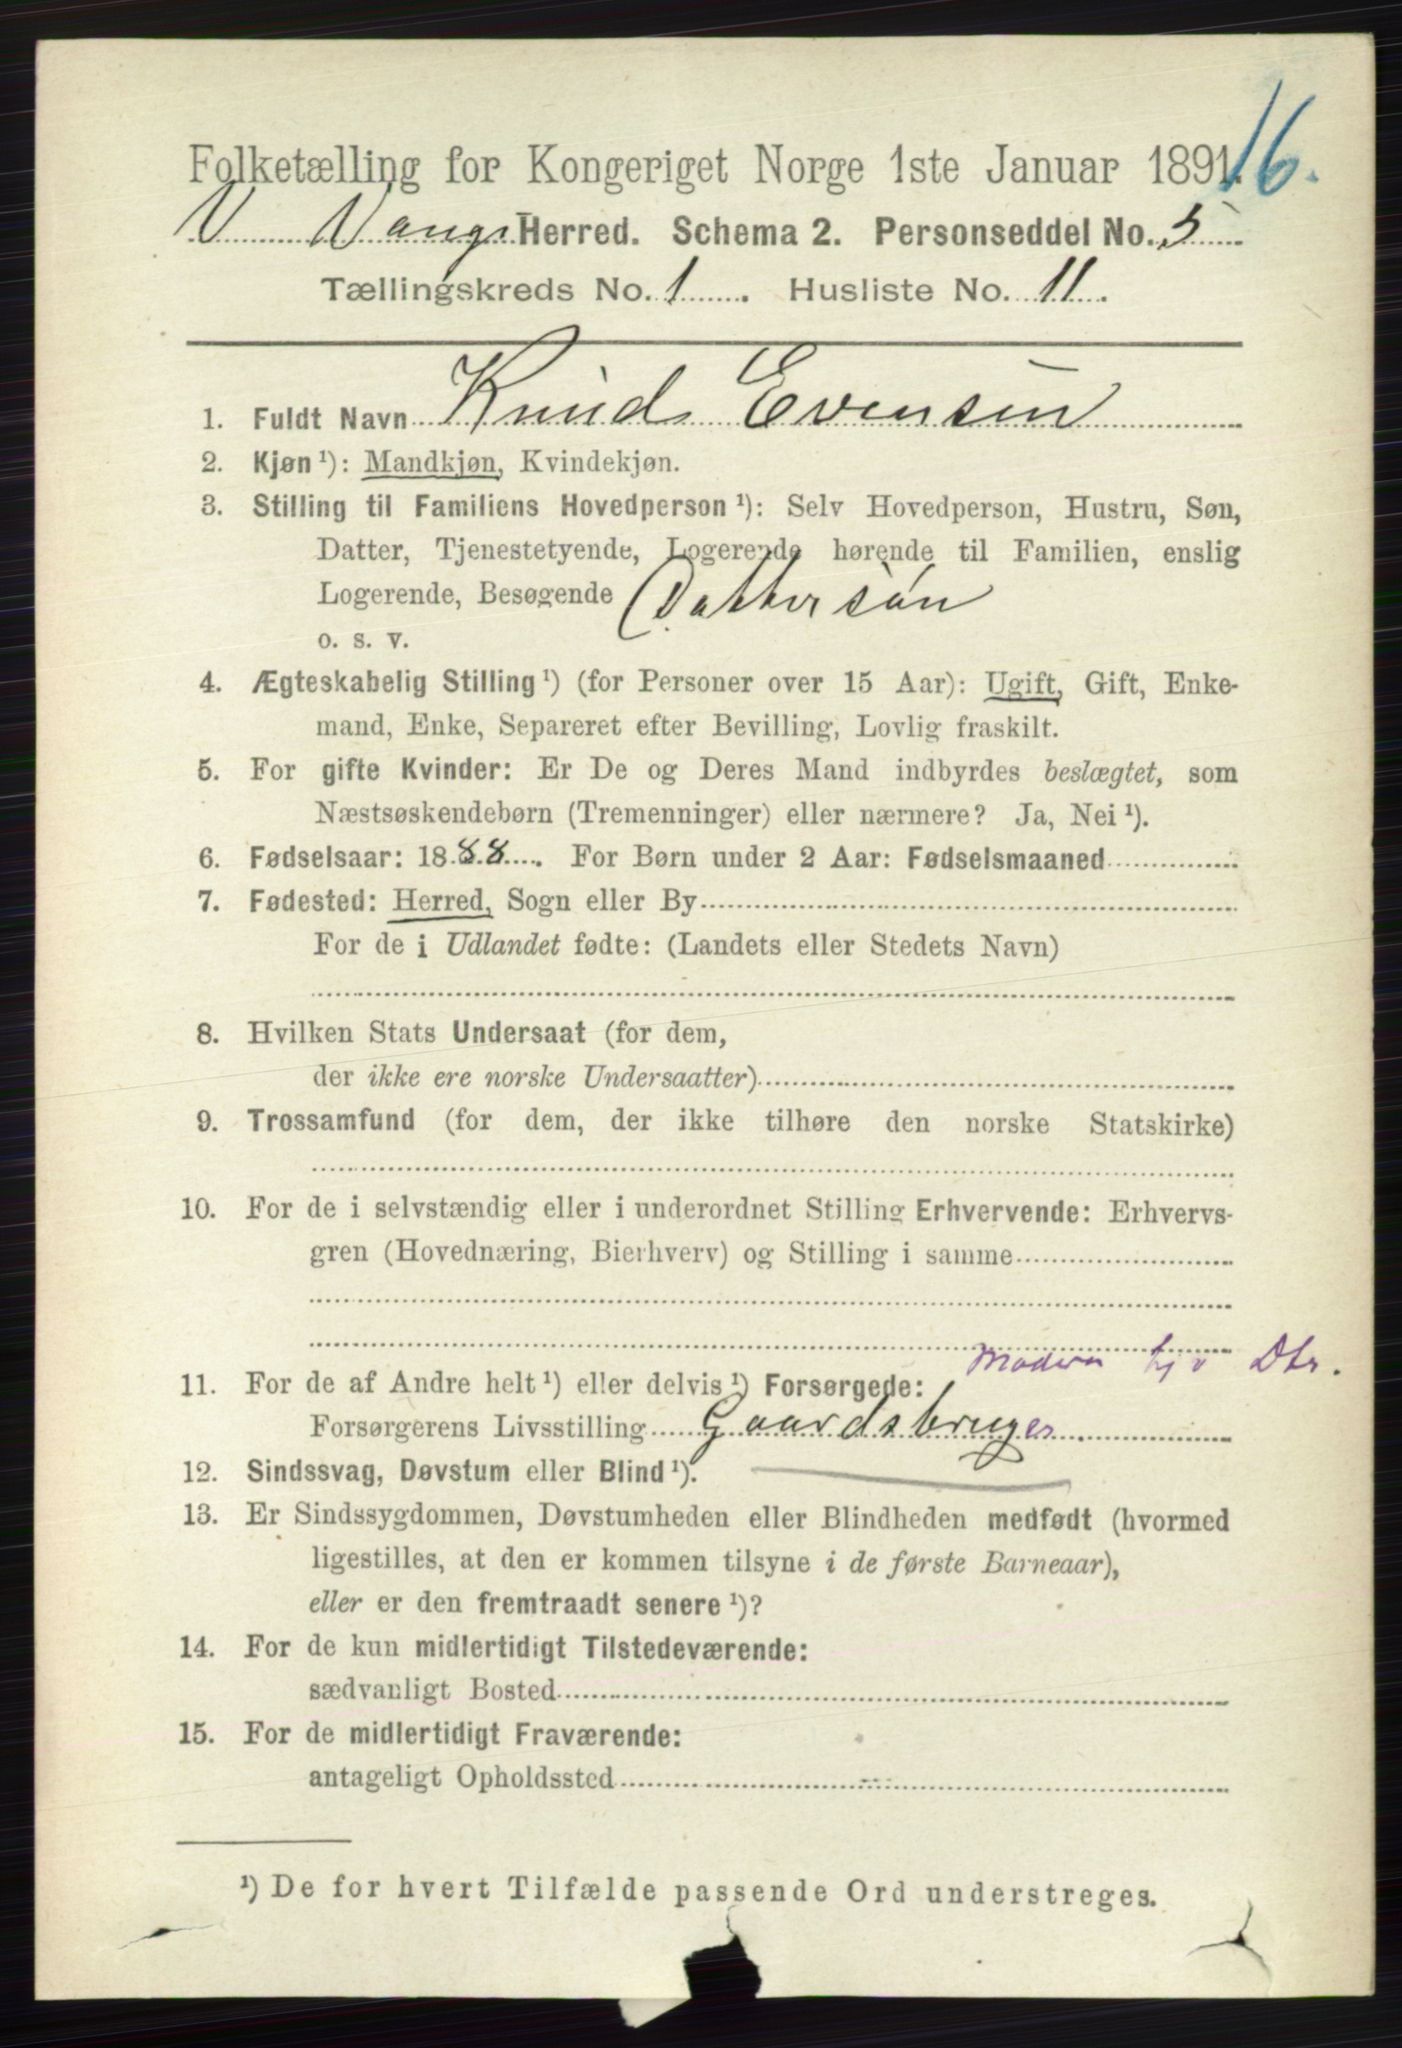 16.
Folketælling for Kongeriget Norge 1ste Januar 1891.
V Vangs Herred. Schema 2. Personseddel No. 5
Tællingskreds No. 1. Husliste No. 11.
1. Fuldt Navn Knud Evensen
2. Kjøn ¹): Mandkjøn, Kvindekjøn.
3. Stilling til Familiens Hovedperson ¹): Selv Hovedperson, Hustru, Søn,
Datter, Tjenestetyende, Logerende hørende til Familien, enslig
Logerende, Besøgende Dattersøn
o. s. v.
4. Ægteskabelig Stilling ¹) (for Personer over 15 Aar): Ugift, Gift, Enke-
mand, Enke, Separeret efter Bevilling, Lovlig fraskilt.
5. For gifte Kvinder: Er De og Deres Mand indbyrdes beslægtet, som
Næstsøskendebørn (Tremenninger) eller nærmere? Ja, Nei ¹).
6. Fødselsaar: 1888. For Børn under 2 Aar: Fødselsmaaned
7. Fødested: Herred, Sogn eller By
For de i Udlandet fødte: (Landets eller Stedets Navn)
8. Hvilken Stats Undersaat (for dem,
der ikke ere norske Undersaatter)
9. Trossamfund (for dem, der ikke tilhøre den norske Statskirke)
10. For de i selvstændig eller i underordnet Stilling Erhvervende: Erhvervs-
gren (Hovednæring, Bierhverv) og Stilling i samme
Moderen tj v Dtr.
11. For de af Andre helt ¹) eller delvis ¹) Forsørgede:
Forsørgerens Livsstilling Gaardsbruger
12. Sindssvag, Døvstum eller Blind ¹).
13. Er Sindssygdommen, Døvstumheden eller Blindheden medfødt (hvormed
ligestilles, at den er kommen tilsyne i de første Barneaar),
eller er den fremtraadt senere ¹)?
14. For de kun midlertidigt Tilstedeværende:
sædvanligt Bosted
15. For de midlertidigt Fraværende:
antageligt Opholdssted
¹) De for hvert Tilfælde passende Ord understreges.